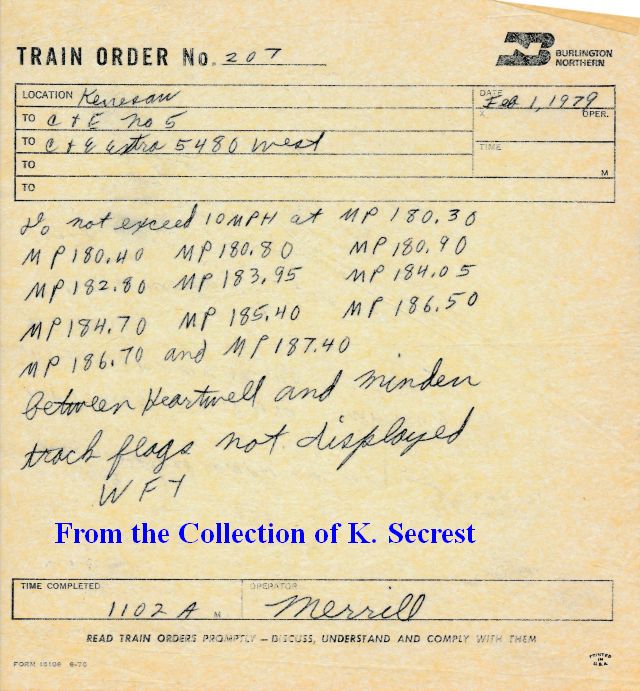 TRAIN ORDER No. 207
BURLINGTON
NORTHERN
LOCATION Kenesaw
DATE Feb 1, 1979
TO C + E No 5
X OPER.
TO C + E Extra 5480 West
TIME
TO
M
TO
Do not exceed 10 MPH at MP 180.30
MP 180.40 MP 180.80 MP 180.90
MP 182.80 MP 183.95 MP 184.05
MP 184.70 MP 185.40 MP 186.50
MP 186.70 and MP 187.40
between Heartwell and Minden
track flags not displayed
WFY
From the Collection of K. Secrest
TIME COMPLETED
OPERATOR
1102 A M
Merrill
READ TRAIN ORDERS PROMPTLY — DISCUSS, UNDERSTAND AND COMPLY WITH THEM
FORM 15106 6-70
PRINTED
IN
U.S.A.